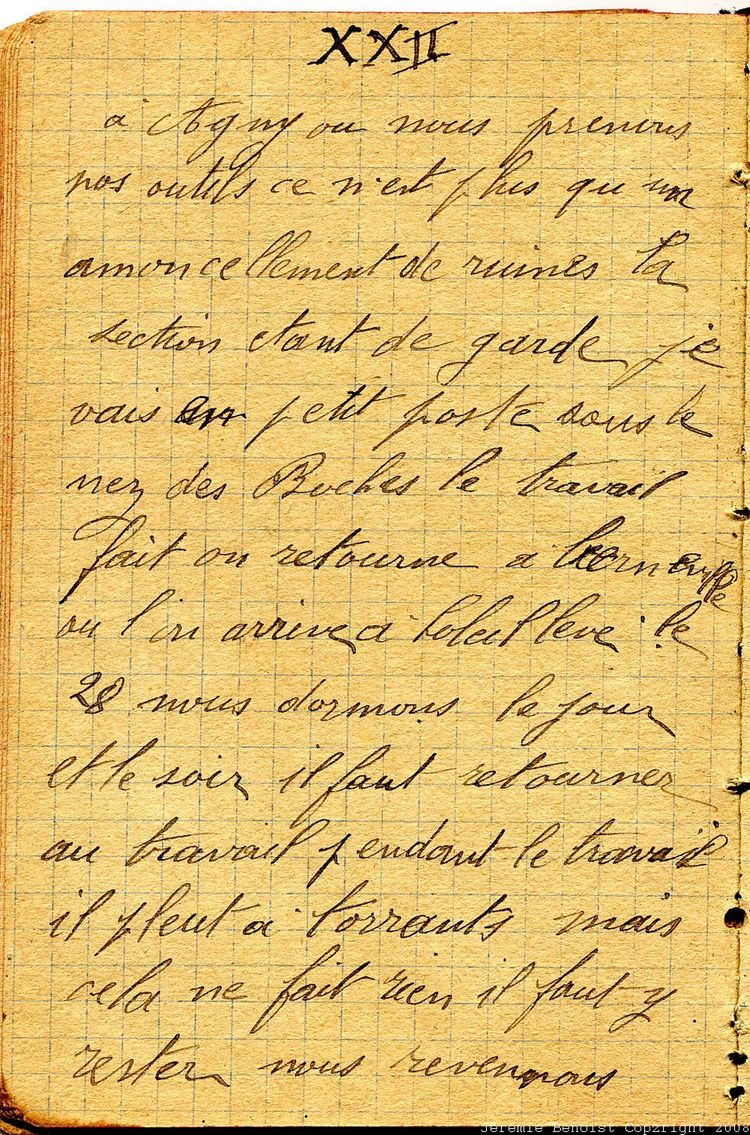 XXII
a Agny ou nous prenons
nos outils ce n'est plus qu un
amoncellement de ruines la
section etant de garde je
vais en petit poste sous le
nez des Boches le travail
fait on retourne a Berneville
ou l'on arrive a soleil levé le
28 nous dormons le jour
et le soir il faut retourner
au travail pendant le travail
il pleut a torrants mais
cela ne fait rien il faut y
rester nous revennons
Jeremie Benoist Copyright 2008